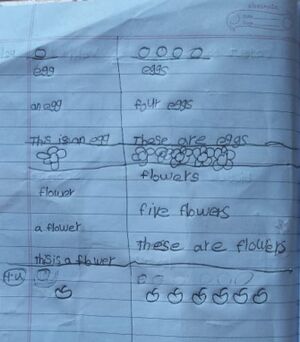 egg eggs
an egg four eggs
This is an egg These are eggs
flowers
flower
five flowers
a flower
These are flowers
this is a flower
H.W